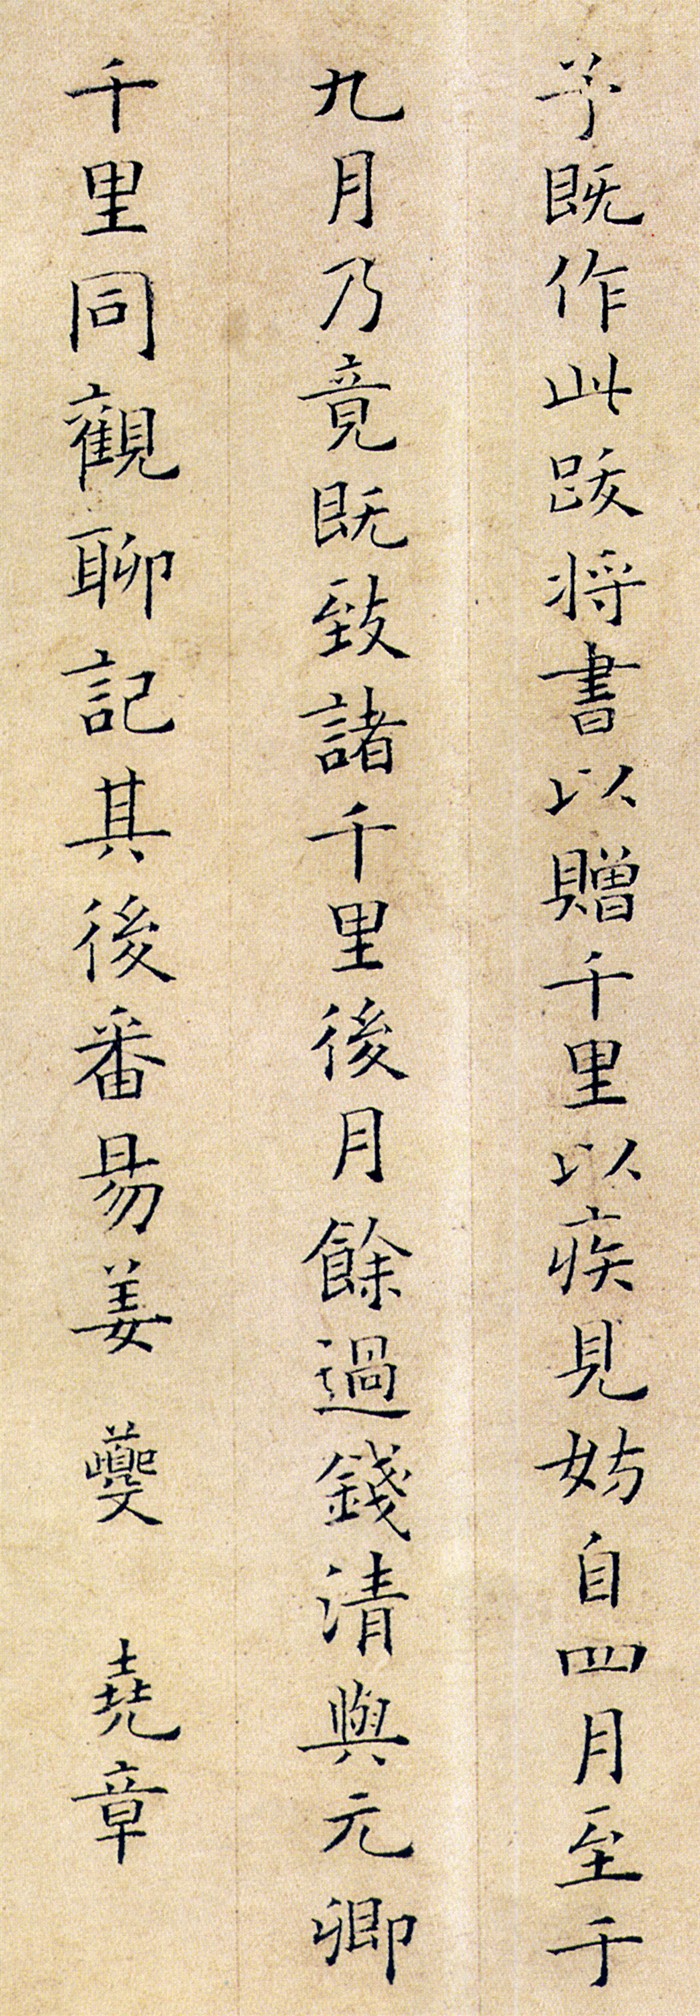 予既作此跋将書以贈千里以疾見妨自四月至于
九月乃竟既致諸千里後月餘過錢清與元卿
千里同觀聊記其後番昜姜夔堯章